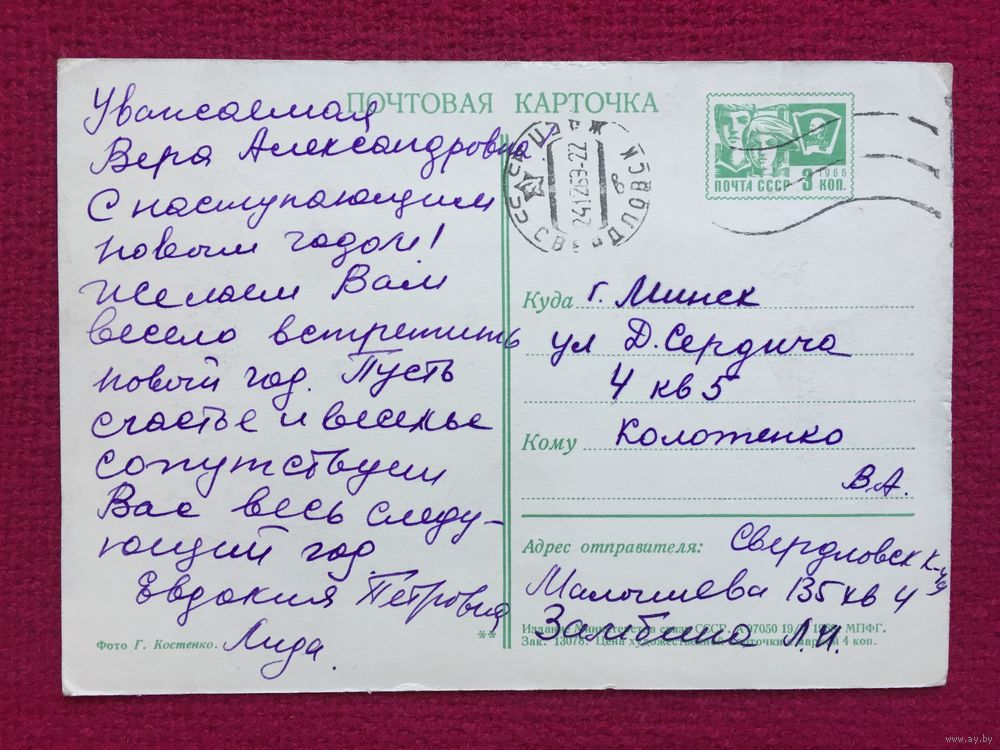 ПОЧТОВАЯ КАРТОЧКА
Уважаемая
Вера Александровна!
С наступающим
новым годом!
Желаем Вам
весело встретить
новый год. Пусть
счастье и веселье
сопутствуют
Вас весь следу-
ющий год.
Евдокия Петровна
Лида.
Фото Г. Костенко.
**
СССР
27-12-69
ПОЧТА СССР 3 КОП.
1966
Куда г. Минск
ул Д. Сердича
4 кв 5
Кому Колотенко
В.А.
Адрес отправителя: Свердловск К-
Малышева 135 кв 4
Л.И.
Издание Министерства связи СССР. 97050 19 МПФГ.
Зак. 13078. Цена художественной карточки с маркой 4 коп.
www.ay.by